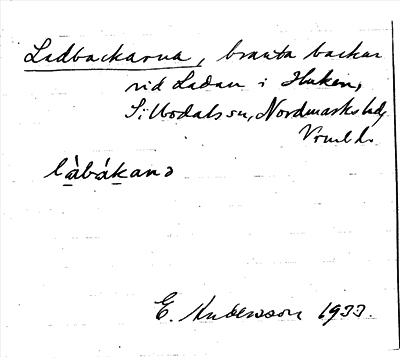 Ladbackarna, branta backar
vid Ladan i Huken,
Silbodals sn, Nordmarks hd,
Vrml.
làbákanɔ
E. Andersson 1933.